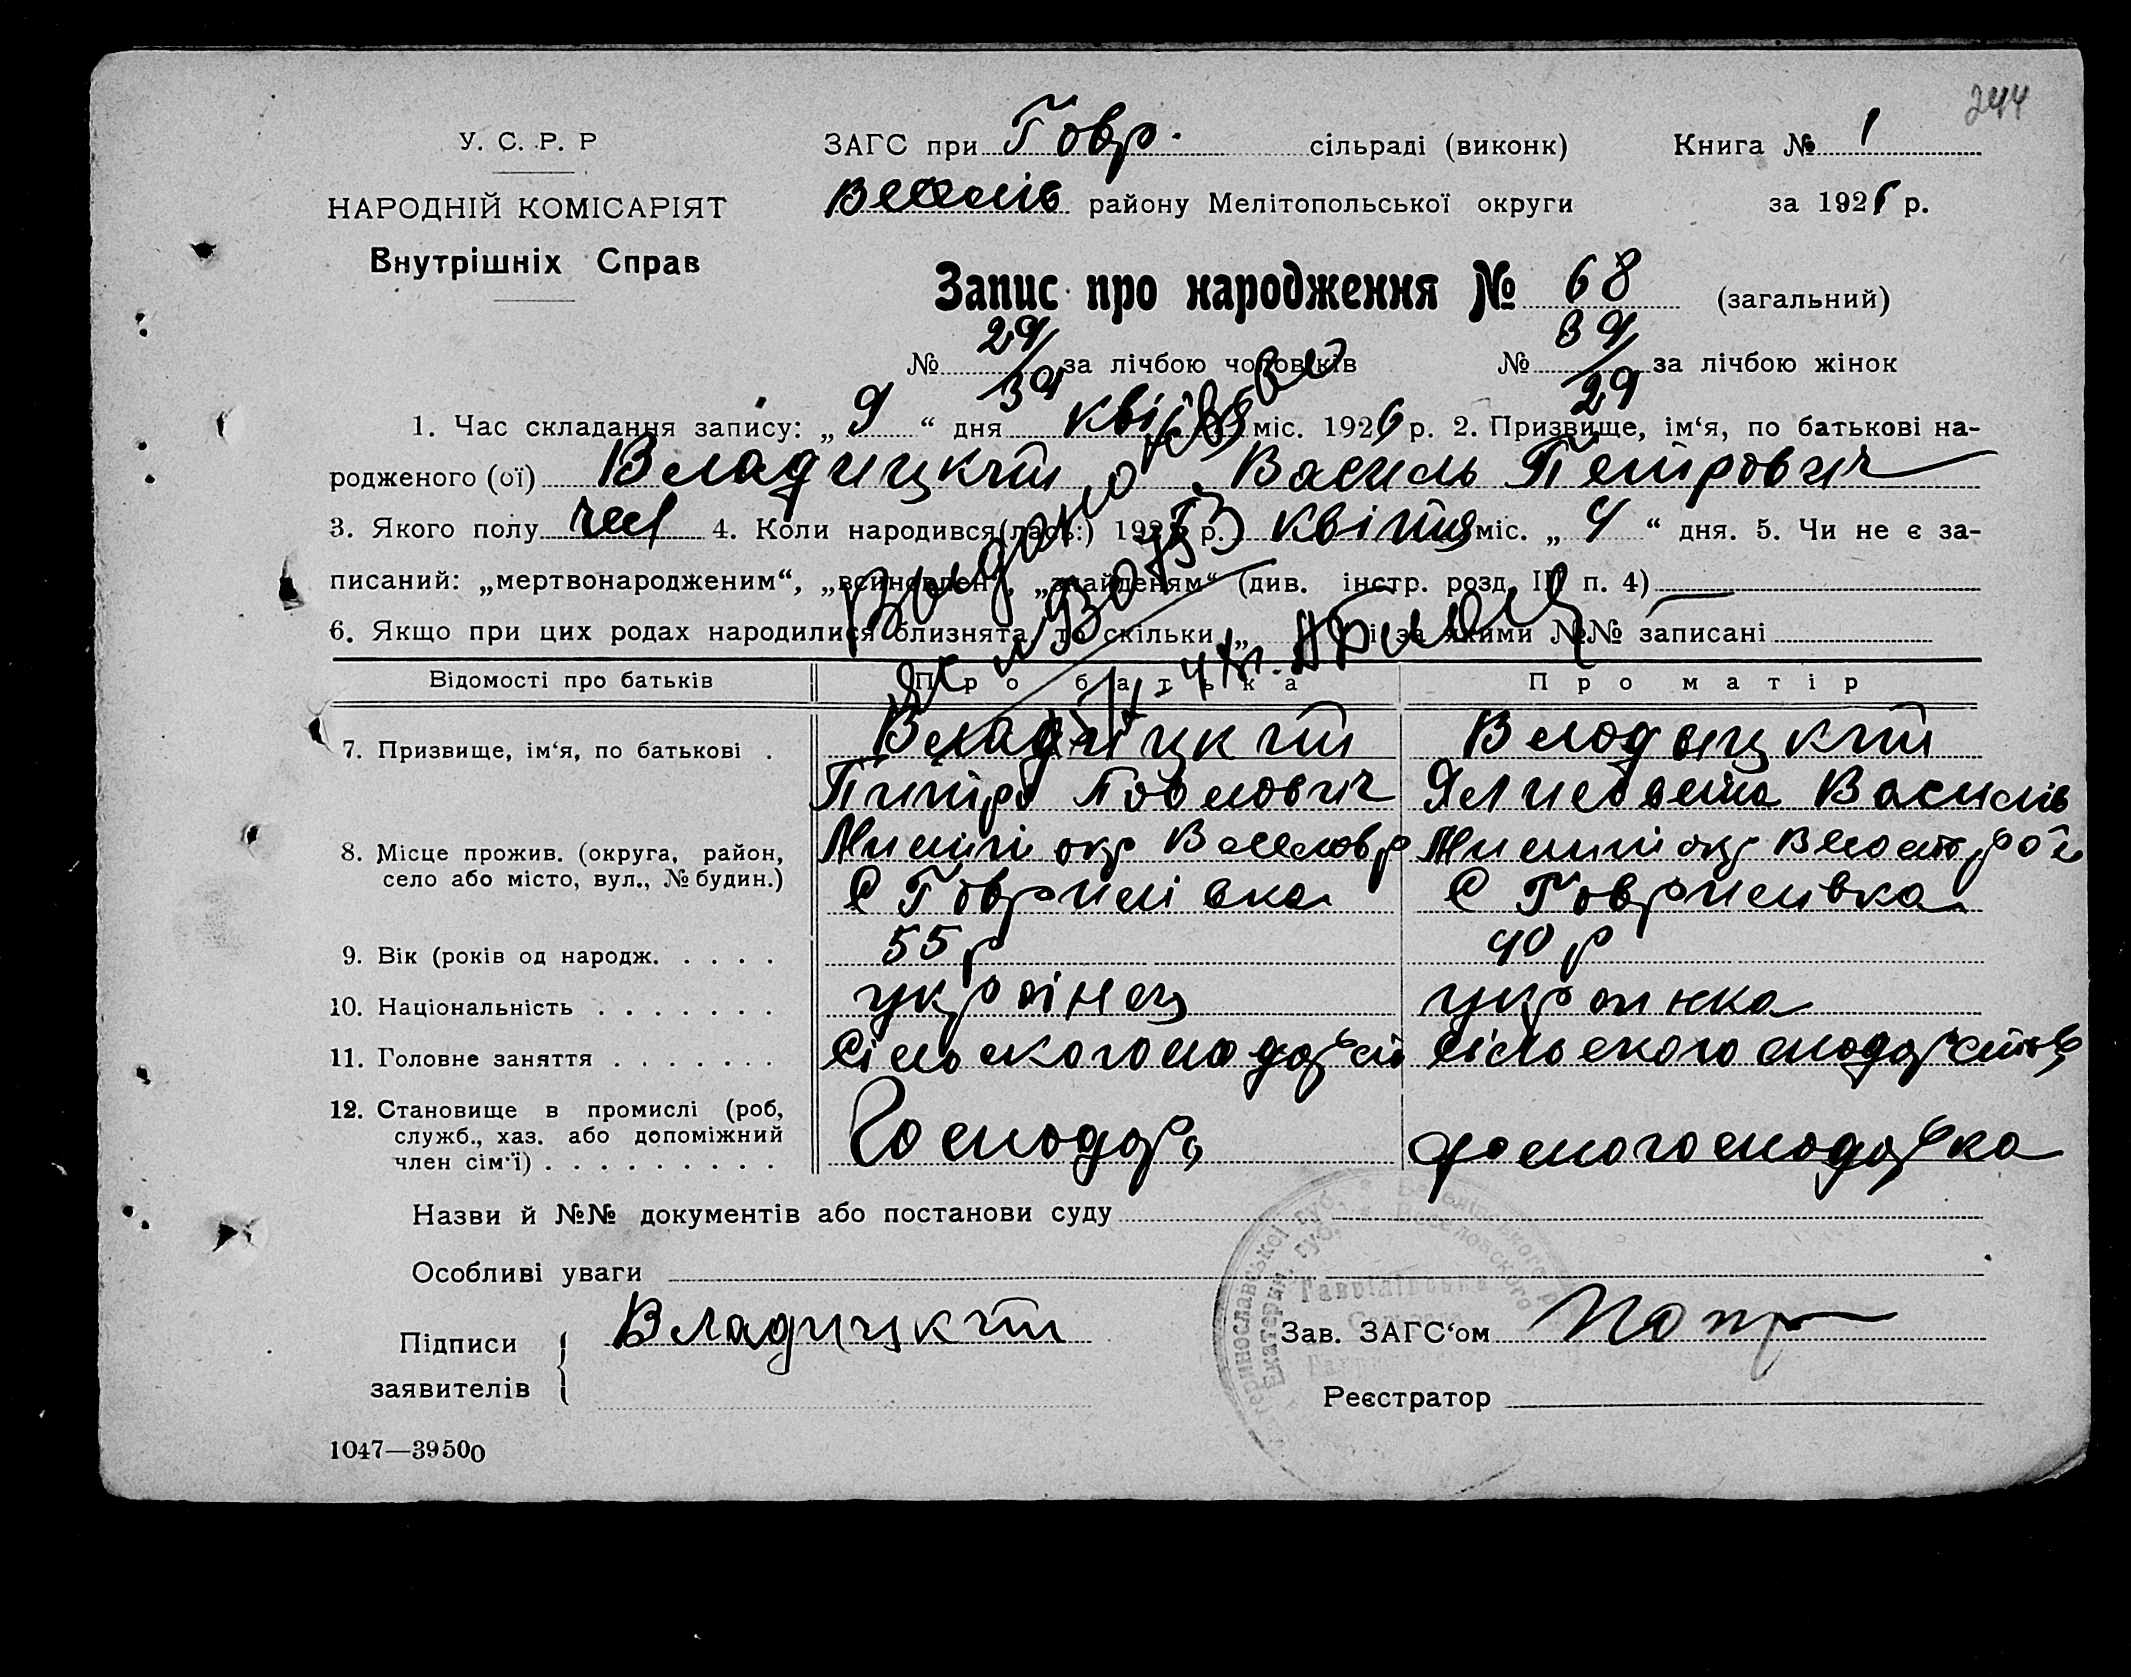 244
У. С. Р. Р
НАРОДНІЙ КОМІСАРІЯТ
Внутрішніх Справ
ЗАГС при Говр. сільраді (виконк) Книга № 1
району Мелітопольської округи за 1926 р.
Запис про народження № 68 (загальний)
№ 29/39 за лічбою чоловіків № 39/29 за лічбою жінок
1. Час складання запису: „ 9 “ дня квітня міс. 1926 р. 2. Призвище, ім‘я, по батькові на-
родженого (ої) Владицкій Василь Петрович
3. Якого полу чол 4. Коли народився(лась:) 192 р. квітня міс. „ 4 “ дня. 5. Чи не є за-
писаний: „мертвонародженим“, „всиновлен“, „знайденям“ (див. інстр. розд. III п. 4)
6. Якщо при цих родах народилися близнята, то скільки „ і за якими №№ записані
Відомості про батьків Про батька Про матір
7. Призвище, ім‘я, по батькові . Владицкий Влодицкий
Питро Товлович Ялисовета Василів
8. Місце прожив. (округа, район,
село або місто, вул., № будин.)
С Говрилівка С Говриливка
9. Вік (років од народж. . . . . 55 р 40 р
10. Національність . . . . . . . українец украинка
11. Головне заняття . . . . . . .
12. Становище в промислі (роб,
служб., хаз. або допоміжний
член сім‘ї) . . . . . . . . . Господар домогосподарка
Назви й №№ документів або постанови суду
Особливі уваги
Підписи
заявителів Владицкий
Зав. ЗАГС‘ом
Реєстратор
1047—39500